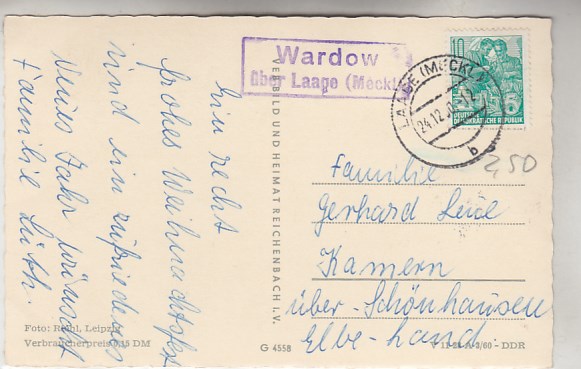 Ein recht
frohes Weihnachtsfest
und ein zufriedenes
neues Jahr wünscht
Familie Lüth.
Foto: Reihl, Leipzig
Verbraucherpreis 0,15 DM
VEB BILD UND HEIMAT REICHENBACH I. V.
G 4558
Wardow
über Laage (Meckl
LAAGE (MECKL)
24.12.
b
10
DEUTSCHE
DEMOKRATISCHE REPUBLIK
2,50
Familie
Gerhard
Kamern
über-Schönhausen
Elbe-Land.
3/60 - DDR